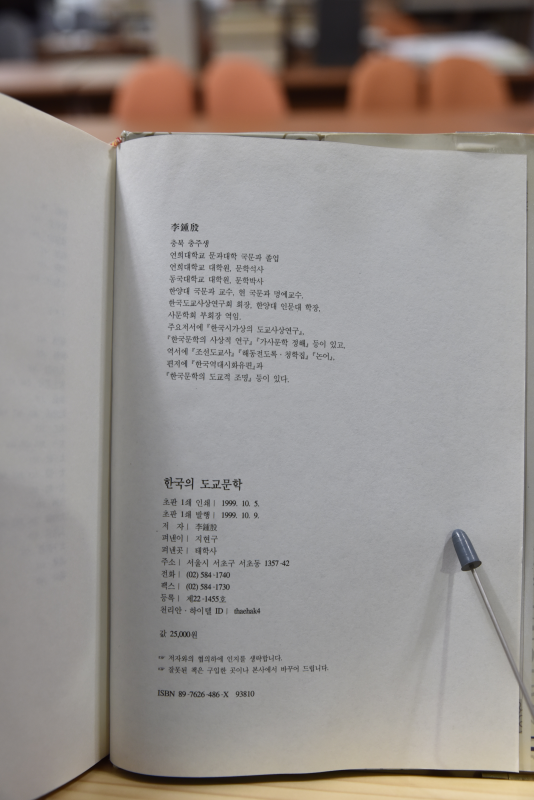 李鍾殷
충북 충주생
연희대학교 문과대학 국문과 졸업
연희대학교 대학원, 문학석사
동국대학교 대학원, 문학박사
한양대 국문과 교수, 현 국문과 명예교수.
한국도교사상연구회 회장, 한양대 인문대 학장,
사문학회 부회장 역임.
주요저서에 『한국시가상의 도교사상연구』,
『한국문학의 사상적 연구』『가사문학 정해』 등이 있고,
역서에 『조선도교사』『해동전도록·청학집』『논어』,
편저에 『한국역대시화유편』과
『한국문학의 도교적 조명』 등이 있다.
한국의 도교문학
초판 1쇄 인쇄 | 1999. 10. 5.
초판 1쇄 발행 | 1999. 10. 9.
저 자 | 李鍾殷
펴낸이 | 지현구
펴낸곳 | 태학사
주소 | 서울시 서초구 서초동 1357-42
전화 | (02) 584-1740
팩스 | (02) 584-1730
등록 | 제22-1455호
천리안·하이텔 ID | thaehak4
값 25,000원
☞ 저자와의 협의하에 인지를 생략합니다.
☞ 잘못된 책은 구입한 곳이나 본사에서 바꾸어 드립니다.
ISBN 89-7626-486-X 93810